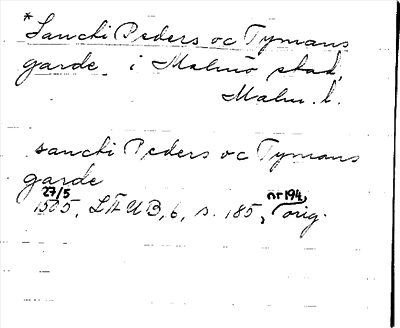 *Sancti Peders oc Tymans
garde i Malmö stad,
Malm. l.
sancti Peders oc Tymans
garde
27/5 nr 194,
1505, LÄUB, 6, s. 185, orig.